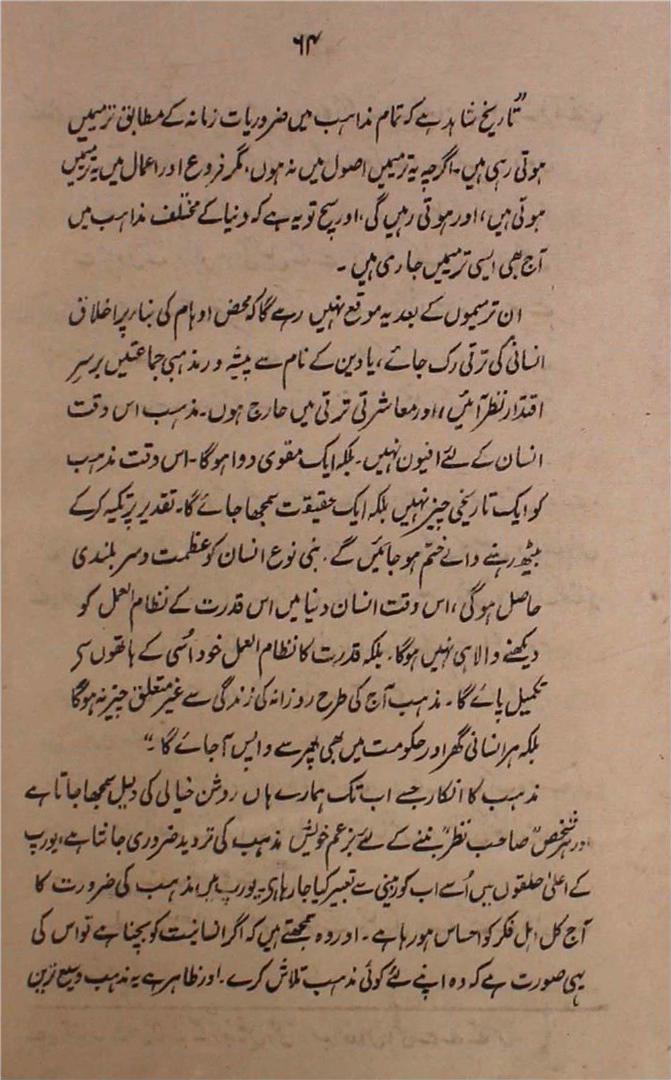 ۶۴
"تاریخ شاہد ہے کہ تمام مذاہب میں ضروریات زمانہ کے مطابق ترمیمیں
ہوتی رہی ہیں۔ اگرچہ یہ ترمیمیں اصول میں نہ ہوں، مگر فروع اور اعمال میں یہ ترمیمیں
ہوتی ہیں، اور ہوتی رہیں گی، اور سچ تو یہ ہے کہ دنیا کے مختلف مذاہب میں
آج بھی ایسی ترمیمیں جاری ہیں۔
ان ترمیموں کے بعد یہ موقع نہیں رہے گا کہ محض اوہام کی بناء پر اخلاق
انسانی کی ترقی رک جائے، یا دین کے نام سے پیشہ ور مذہبی جماعتیں برسرِ
اقتدار نظر آئیں، اور معاشرتی ترقی میں حارج ہوں۔ مذہب اس وقت
انسان کے لئے افیون نہیں۔ بلکہ ایک مقوی دوا ہوگا۔ اس وقت مذہب
کو ایک تاریخی چیز نہیں بلکہ ایک حقیقت سمجھا جائے گا۔ تقدیر پر تکیہ کرکے
بیٹھ رہنے والے ختم ہو جائیں گے۔ بنی نوع انسان کو عظمت و سربلندی
حاصل ہوگی، اس وقت انسان دنیا میں اس قدرت کے نظام العمل کو
دیکھنے والا ہی نہیں ہوگا۔ بلکہ قدرت کا نظام العمل خود اُسی کے ہاتھوں سے
تکمیل پائے گا۔ مذہب آج کی طرح روزانہ کی زندگی سے غیر متعلق چیز نہ ہوگا
بلکہ ہر انسانی گھر اور حکومت میں بھی پھر سے واپس آجائے گا۔"
مذہب کا انکار جسے اب تک ہمارے ہاں روشن خیالی کی دلیل سمجھا جاتا ہے
اور ہر شخص "صاحب نظر" بننے کے لئے بزعم خویش مذہب کی تردید ضروری جانتا ہے، یورپ
کے اعلیٰ حلقوں میں اُسے اب کور ذہنی سے تعبیر کیا جا رہا ہے۔ یورپ میں مذہب کی ضرورت کا
آج کل اہل فکر کو احساس ہو رہا ہے۔ اور وہ سمجھتے ہیں کہ اگر انسانیت کو بچنا ہے تو اس کی
یہی صورت ہے کہ وہ اپنے لئے کوئی مذہب تلاش کرے۔ اور ظاہر ہے یہ مذہب وسیع ترین